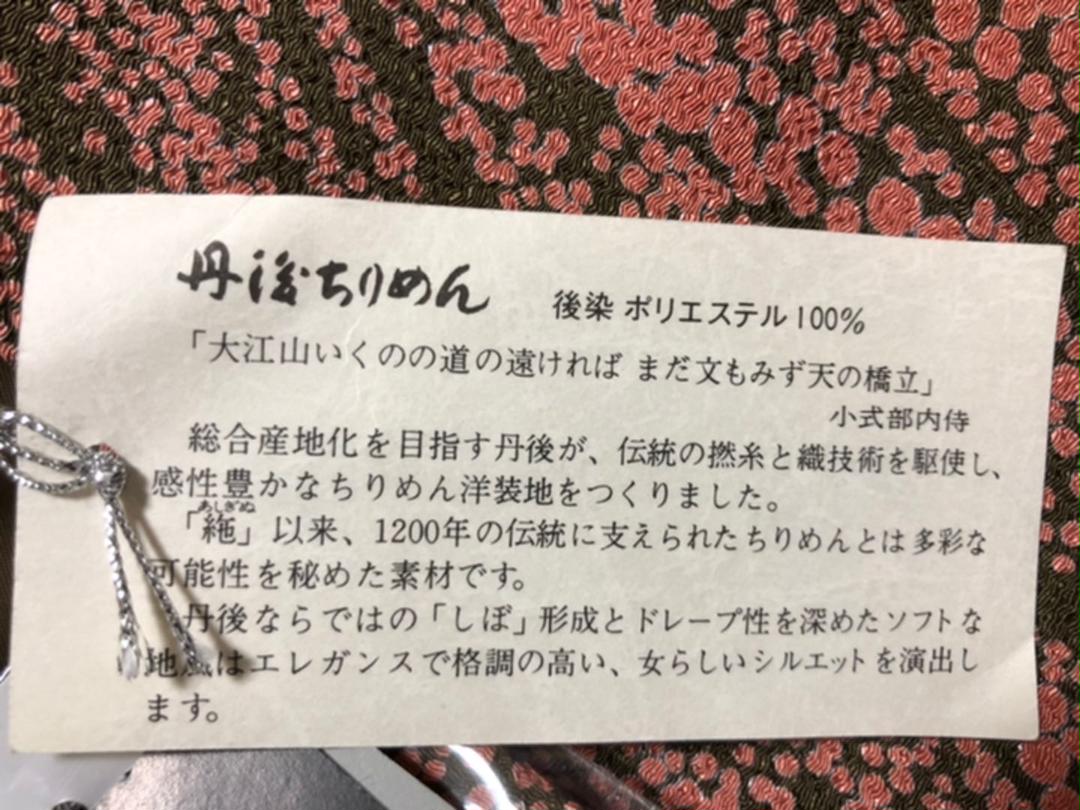 丹後ちりめん 後染 ポリエステル100%
「大江山いくのの道の遠ければ まだ文もみず天の橋立」
小式部内侍
総合産地化を目指す丹後が、伝統の撚糸と織技術を駆使し、
感性豊かなちりめん洋装地をつくりました。
あしぎぬ
「絁」以来、1200年の伝統に支えられたちりめんとは多彩な
可能性を秘めた素材です。
丹後ならではの「しぼ」形成とドレープ性を深めたソフトな
地風はエレガンスで格調の高い、女らしいシルエットを演出し
ます。